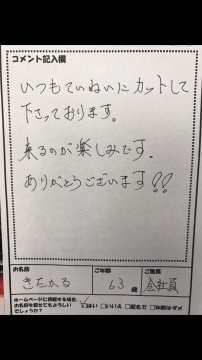 コメント記入欄
いつもていねいにカットして
下さっております。
来るのが楽しみです.
ありがとうございます!!
お名前 ご年齢 ご職業
きたかる 63歳 会社員
ホームページに掲載する場合、
お名前を載せてもよろしい
でしょうか?
□はい □いいえ □匿名で □年齢はダメ